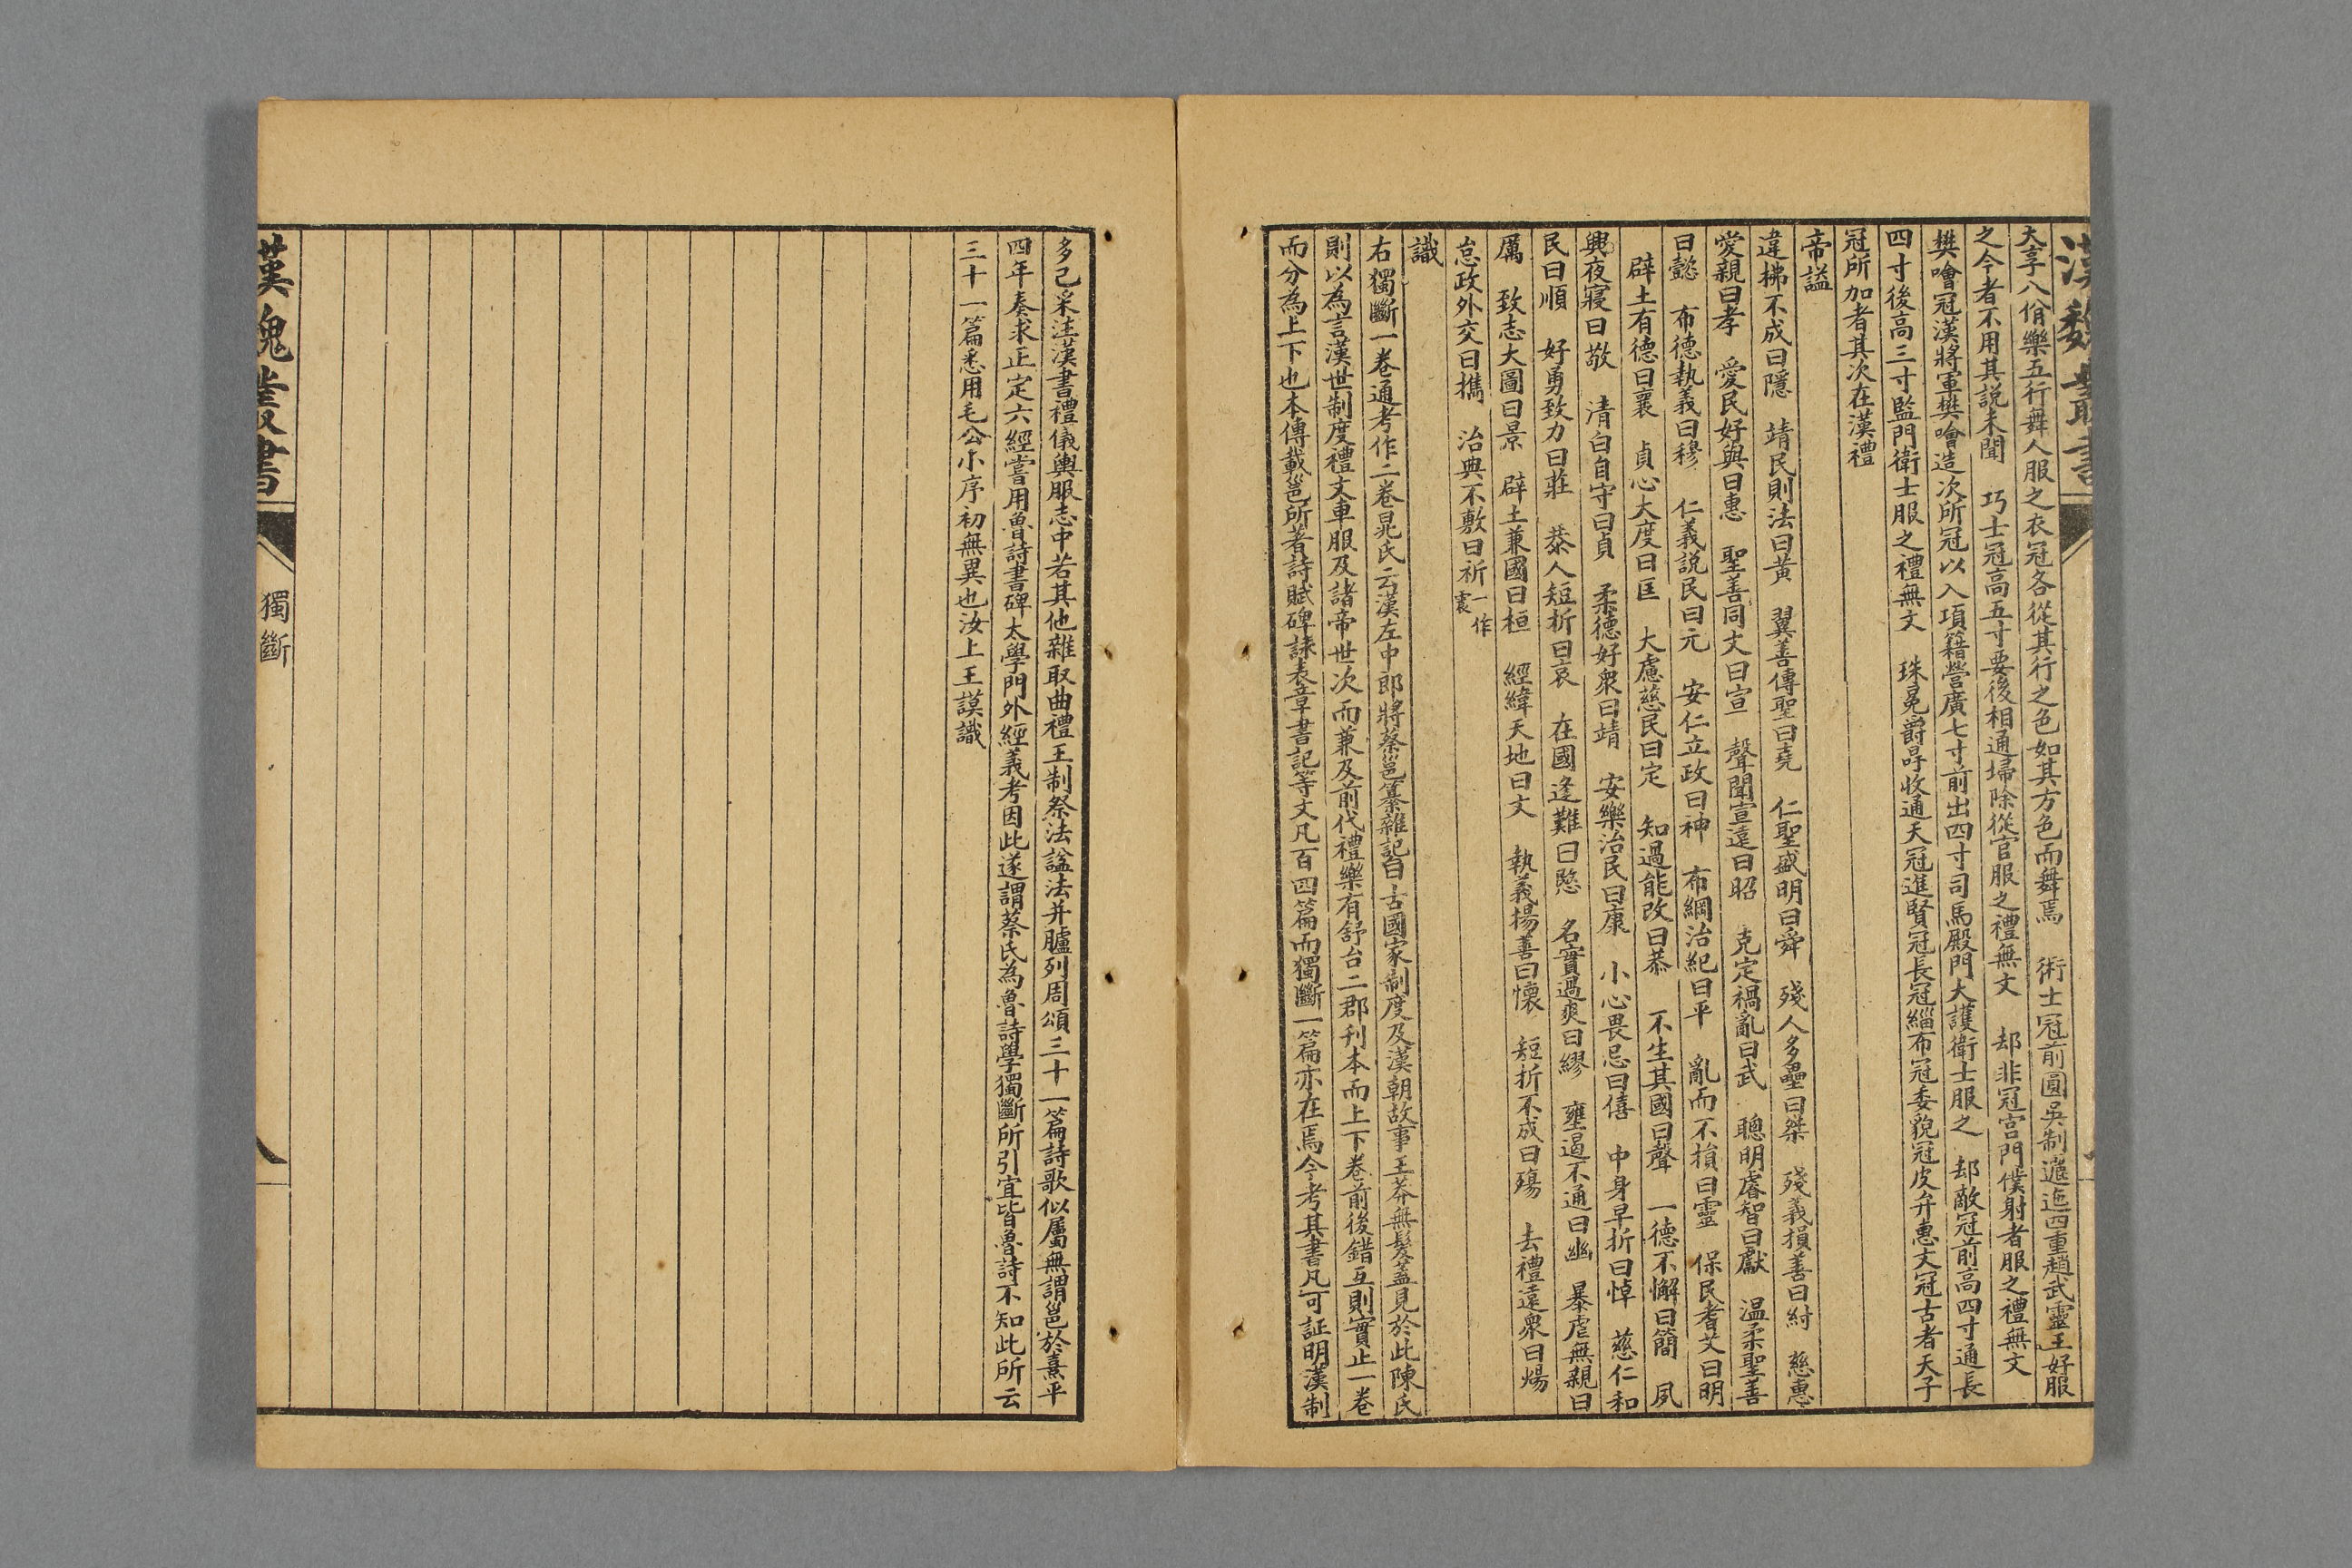 漢魏叢書
大享八佾樂五行舞人服之衣冠各從其行之色如其方色而舞焉　術士冠前圓吳制邐迤四重趙武靈王好服
之今者不用其説未聞　巧士冠高五寸要後相通埽除從官服之禮無文　却非冠宫門僕射者服之禮無文
樊噲冠漢將軍樊噲造次所冠以入項籍營廣七寸前出四寸司馬殿門大護衛士服之　却敵冠前高四寸通長
四寸後高三寸監門衛士服之禮無文　珠冕爵冔收通天冠進賢冠長冠緇布冠委貌冠皮弁惠文冠古者天子
冠所加者其次在漢禮
帝謚
違拂不成曰隱　靖民則法曰黃　翼善傳聖曰堯　仁聖盛明曰舜　殘人多壘曰桀　殘義損善曰紂　慈惠
愛親曰孝　愛民好與曰惠　聖善同文曰宣　聲聞宣遠曰昭　克定禍亂曰武　聰明睿智曰獻　温柔聖善
曰懿　布德執義曰穆　仁義説民曰元　安仁立政曰神　布綱治紀曰平　亂而不損曰靈　保民耆艾曰明
辟土有德曰襄　貞心大度曰匡　大慮慈民曰定　知過能改曰恭　不生其國曰聲　一德不懈曰簡　夙
興夜寢曰敬　清白自守曰貞　柔德好衆曰靖　安樂治民曰康　小心畏忌曰僖　中身早折曰悼　慈仁和
民曰順　好勇致力曰莊　恭人短折曰哀　在國逢難曰愍　名實過爽曰繆　壅遏不通曰幽　暴虐無親曰
厲　致志大圖曰景　辟土兼國曰桓　經緯天地曰文　執義揚善曰懷　短折不成曰殤　去禮遠衆曰煬
怠政外交曰攜　治典不敷曰祈一作震
識
右獨斷一卷通考作二卷晁氏云漢左中郎將蔡邕纂雜記曰古國家制度及漢朝故事王莽無髮蓋見於此陳氏
則以為言漢世制度禮文車服及諸帝世次而兼及前代禮樂有舒台二郡刊本而上下卷前後錯互則實止一卷
而分為上下也本傳載邕所著詩賦碑誄表章書記等文凡百四篇而獨斷一篇亦在焉今考其書凡可証明漢制
多已采注漢書禮儀輿服志中若其他雜取曲禮王制祭法謚法并臚列周頌三十一篇詩歌似屬無謂邕於熹平
四年奏求正定六經嘗用魯詩書碑太學門外經義考因此遂謂蔡氏為魯詩學獨斷所引宜皆魯詩不知此所云
三十一篇悉用毛公小序初無異也汝上王謨識
漢魏叢書
獨斷
八